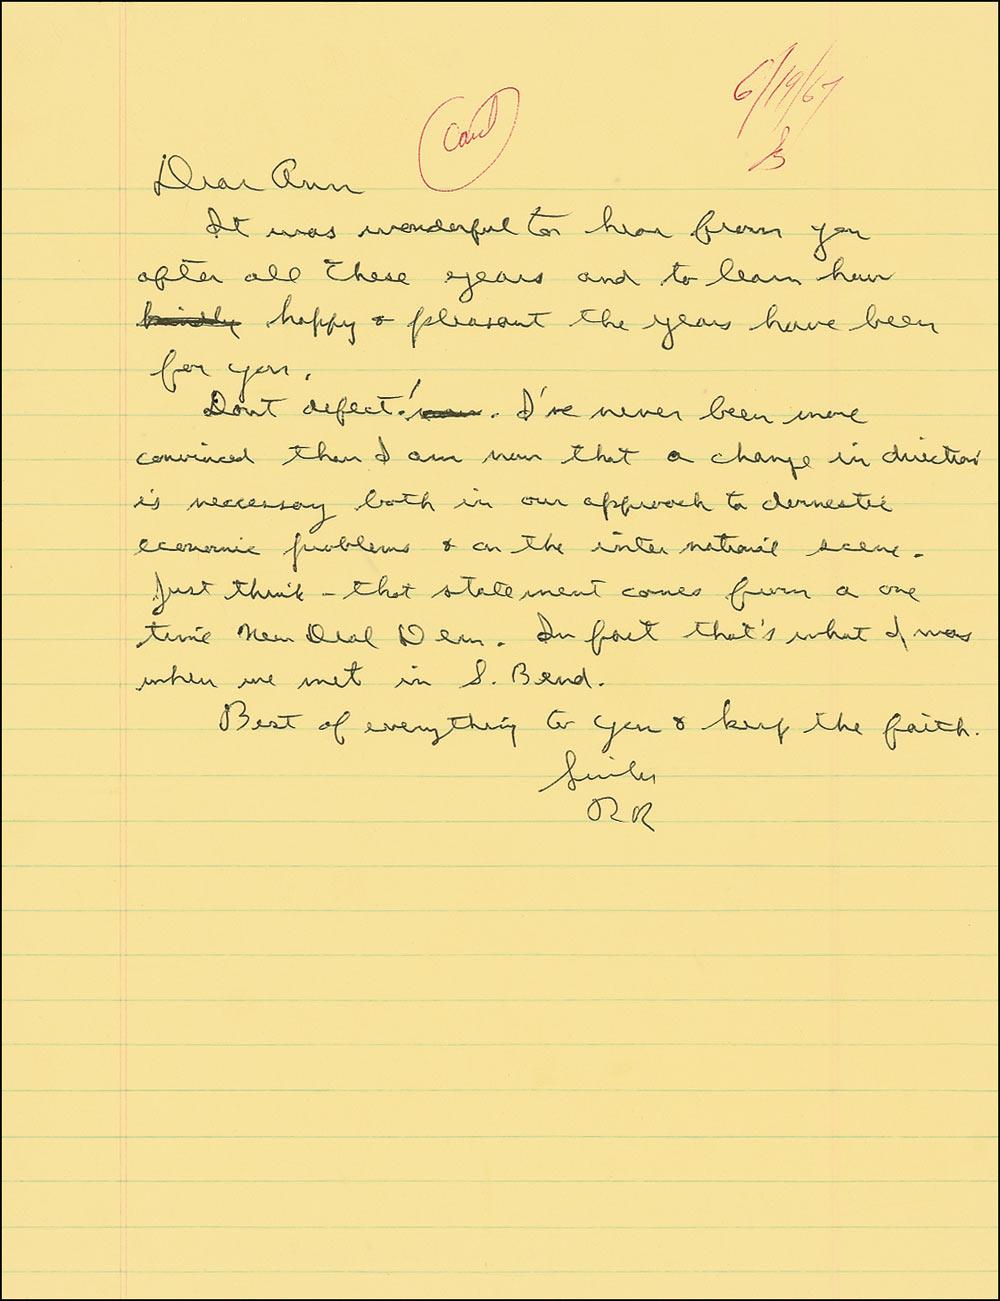 6/19/67
Card
Dear Ann
It was wonderful to hear from you
after all these years and to learn how
kindly happy & pleasant the years have been
for you.
Dont defect! . I've never been more
convinced than I am now that a change in direction
is necessary both in our approach to domestic
economic problems & on the inter national scene.
Just think - that statement comes from a one
time New Deal Dem. In fact that's what I was
when we met in S. Bend.
Best of everything to you & keep the faith.
RR